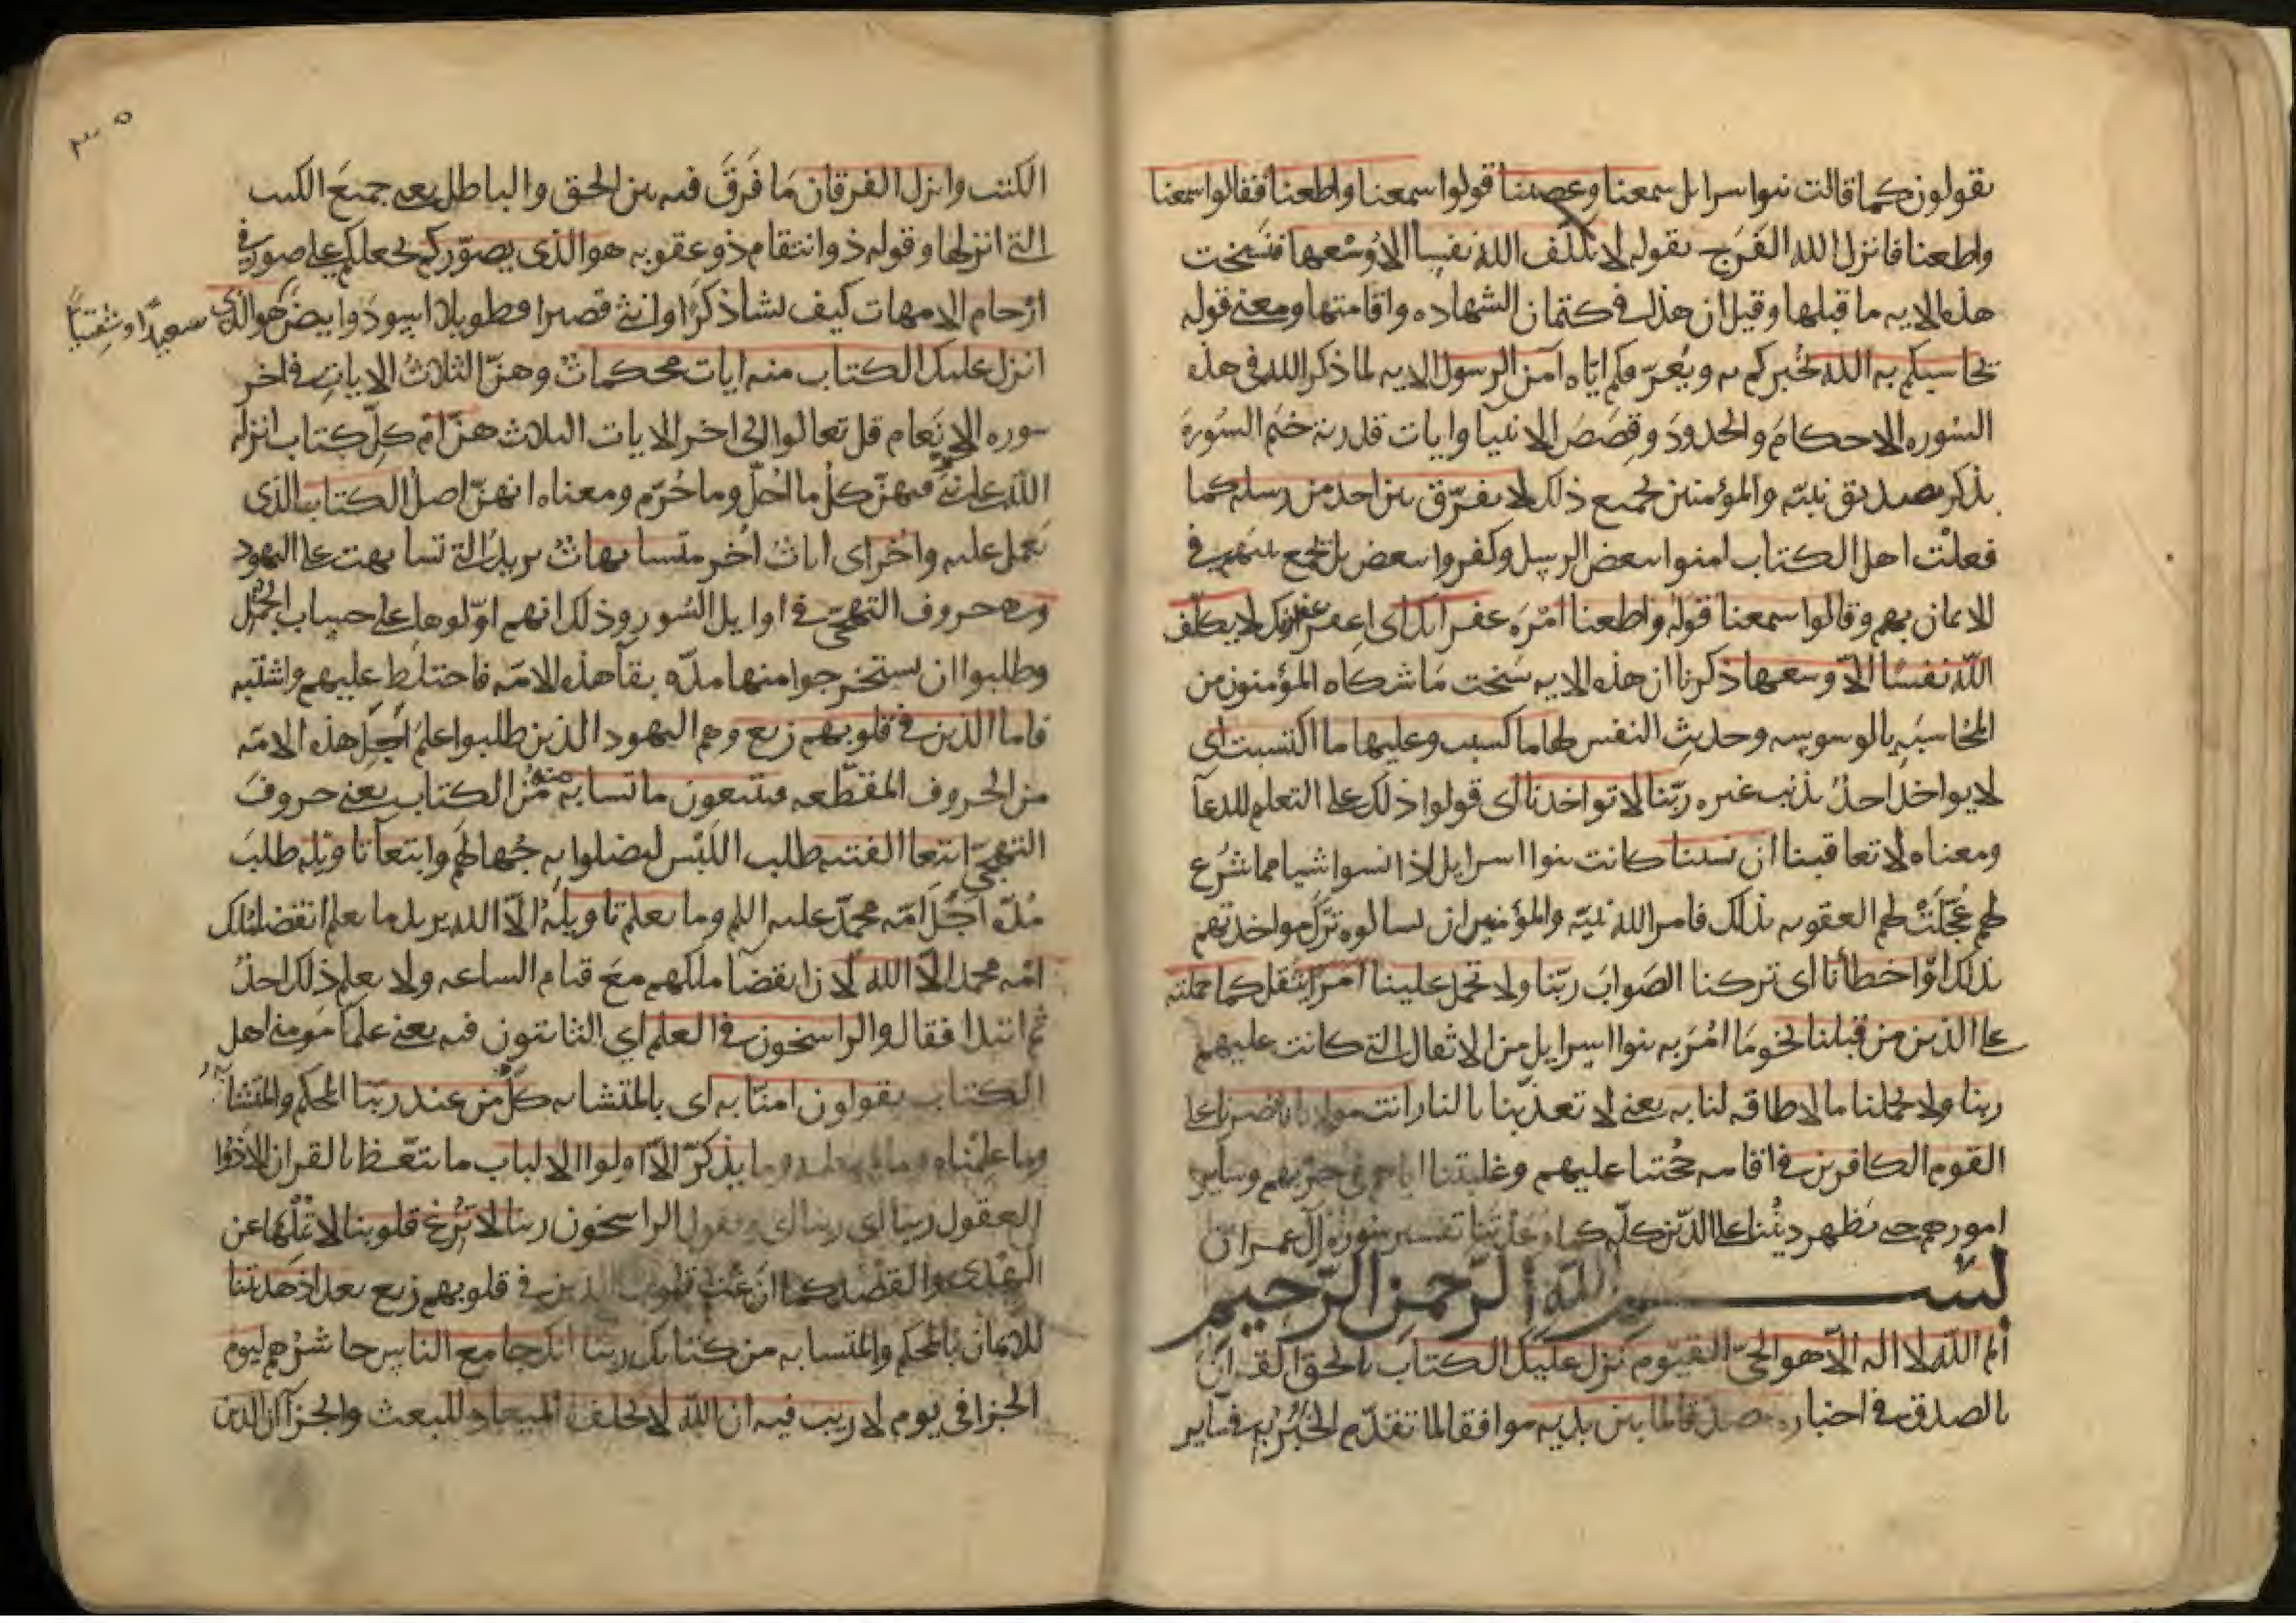 يقولون كما قالت بنوا سرايل سمعنا وعصينا قولوا سمعنا واطعنا فقالوا سمعنا
واطعنا فانزل الله الفرج بقوله لا يكلف الله نفسا الا وُسْعها فنسخت
هذه الايه ما قبلها وقيل ان هذا في كتمان الشهاده واقامتها ومعنى قوله
يحاسبكم به الله يخبركم به ويُعرّفكم ايّاه آمن الرسول الايه لما ذكر الله في هذه
السوره الاحكامَ والحدودَ وقِصَصَ الانبيا وايات قدرته ختم السُورةَ
بذكر تصديق نبيّه والمؤمنين بجميع ذلك لا نفرّق بين احد من رسله كما
فعلتْ اهل الكتاب امنوا ببعض الرسل وكفروا ببعض بل نجمع بينهم في
الايمان بهم وقالوا سمعنا قوله واطعنا امْرَه غفرانك اى اغفر غفرانك لا يكلف
اللّه نفسًا الاّ وسعها ذكرنا ان هذه الايه نسخت مَا شكاه المؤمنون من
المُحاسبَهِ بالوسوسه وحديثِ النفس لها ما كسبت وعليها ما اكتسبت اى
لا يواخذ احدٌ بذنب غيره ربّنا لا تواخذنا اى قولوا ذلك على التعلم للدعآ
ومعناه لا تعاقبنا ان نسينا كانت بنوا اسرايل اذا نسوا شيا مما شُرِع
لهم عُجّلَتْ لهم العقوبه بذلك فامر الله نبيّه والمؤمنين ان يسالوه تَرْكَ مواخذتهم
بذلك او اخطأنا اى تركنا الصَوابَ ربّنا ولا تحمل علينا امرًا يثقل كما حملته
على الذين من قبلنا نحو مَا امُرَ به بنوا اسرايل من الاثقال التى كانت عليهم
ربنا ولا تحملنا ما لا طاقه لنا به يعنى لا تعذّبنا بالنار انت مولانا فانصرنا على
القوم الكافرين في اقامه حُجّتنا عليهم وغلبتنا اياهم في حربهم وساير
امورهم حتى يَظهر ديْنُنا على الدّين كلّه كما وعدتنا تفسير سورة آل عمران
بســـم الله الرّحمن الرّحيم
الم اللّه لا اله الاّ هو الحيّ القيّوم نَزل عليك الكتابَ بالحق القرآنَ
بالصدق في اخباره مصدقا لما بين يديه موافقا لما تقدّم الخَبَرُ به في ساير
الكتب وانزل الفرقان مَا فَرَقَ فيه بين الحق والباطل يعنى جميعَ الكتب
التى انزلها وقوله ذو انتقام ذو عقوبه هو الذى يصوّركم يجعلكم على صور في
ارْحام الامهات كيف يشا ذكرًا وانثى قصيرا وطويلا اسودَ وابيضَ سعيدًا وشقيًّا هو الذى
انزل عليك الكتاب منه ايات محكماتٌ وهنّ الثلاثُ الايات في اخر
سوره الانعام قل تعالوا الى اخر الايات الثلاث هنّ امّ كلّ كتاب انزله
اللّه على نبيّ فيهنّ كلُ ما اُحلّ وما حُرّم ومعناه انهنّ اصلُ الكتاب الذى
يُعمل عليه واُخر اى اياتٌ اُخر متشابهاتٌ يريدُ التى تشابهت على اليهود
وهى حروف التهجّى في اوايل السُور وذلك انهم اوّلوها على حساب الجُمَّل
وطلبوا ان يستخرجوا منها مدّه بقآ هذه الامّه فاختلط عليهم واشتبه
فاما الذين في قلوبهم زيع وهم اليهود الذين طلبوا علمَ اُجلِ هذه الامّه
من الحروف المقطّعه فيتبعون ما تشابه منه من الكتاب يعنى حروفَ
التهجّى ابتغا الفتنه طلب اللَبْس ليضلوا به جُهالهم وابتغآ تاويله طلبَ
مُدّه اَجَلِ امّه محمّد عليه السلم وما يعلم تاويلَهُ الاّ الله يريد ما يعلم انقضا مُلك
امّه محمد الاّ الله لان انقضآ ملكهم معَ قيام الساعه ولا يعلم ذلك احدٌ
ثم ابتدا فقال والراسخون في العلم اى الثابتون فيه يعنى علمآ مومنى اهل
الكتاب يقولون امنّا به اى بالمتشابه كلٌ من عند ربّنا المحكم والمتشابه
وما علمناه وما لم نعلمه وما يذكرّ الاّ اولوا الالباب ما يتّعظ بالقران الا ذوُوا
العقول ربنا اى ويقول الراسخون ربنا لا تُزغ قلوبنا لا تُمْلها عن
الهُدى والقصْد كما ازغت قلوب الذين في قلوبهم زيع بعد اذ هديتنا
للايمان بالمحكم والمتشابه من كتابك ربنا انك جامع الناس حاشرُهم ليوم
الجزا في يوم لا ريب فيه ان اللّه لا يخلف الميعاد للبعث والجزآ ان الذين